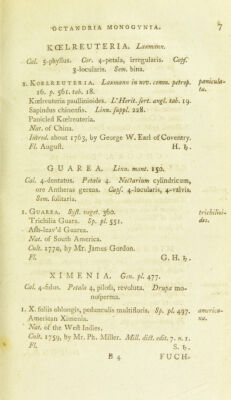 OCTANDRIA MONOGYNIA. 7
KŒLREUTERIA. Laxmann.
Cal. 5-phyllus. Cor. 4-petala, irregularis. Caps.
3-locularis. Sem. bina.
1. KOELREUTERIA. Laxmann in nov. comm. petrop. panicula-
16. p. 561. tab. 18. ta.
Kœlreuteria paullinioides. L'Herit. sert. angl. tab. 19.
Sapindus chinensis. Linn. suppl. 228.
Panicled Kœlreuteria.
Nat. of China.
Introd. about 1763, by George W. Earl of Coventry.
Fl. August. H. ♄.
GUAREA. Linn. mant. 150.
Cal. 4-dentatus. Petala 4. Nectarium cylindricum,
ore Antheras gerens. Caps. 4-locularis, 4-valvis.
Sem. solitaria.
1. GUAREA. Syst. veget. 360. trichilioi-
Trichilia Guara. Sp. pl. 551. des.
Ash-leav'd Guarea.
Nat. of South America.
Cult. 1770, by Mr. James Gordon.
Fl. G. H. ♄.
XIMENIA. Gen. pl. 477.
Cal. 4-fidus. Petala 4, pilosa, revoluta. Drupa mo-
nosperma.
1. X. foliis oblongis, pedunculis multifloris. Sp. pl. 497. america-
American Ximenia. na.
Nat. of the West Indies.
Cult. 1759, by Mr. Ph. Miller. Mill. dict. edit. 7. n. 1.
Fl. S. ♄.
B 4 FUCH-